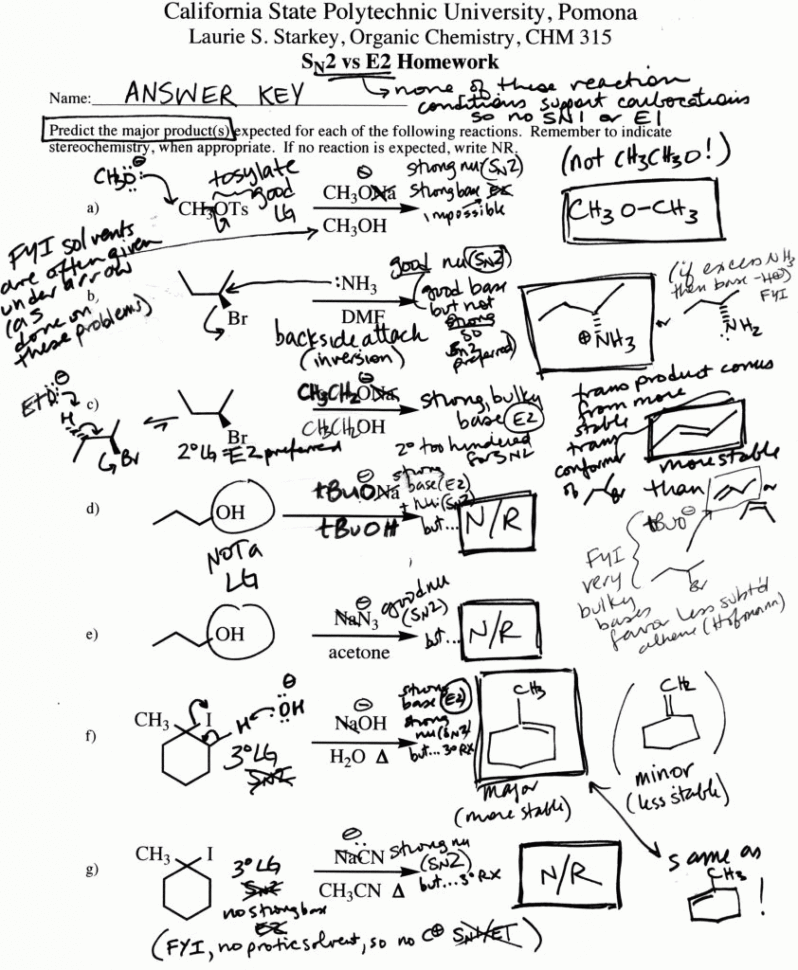 California State Polytechnic University, Pomona
Laurie S. Starkey, Organic Chemistry, CHM 315
SN2 vs E2 Homework
Name: ANSWER KEY
→ none of these reaction
conditions support carbocations
so no SN1 or E1
Predict the major product(s) expected for each of the following reactions. Remember to indicate
stereochemistry, when appropriate. If no reaction is expected, write NR.
a)
CH3O:⊖
tosylate
good
LG
CH3OTs
⊖
CH3ONa
CH3OH
strong nu (SN2)
strong base E2
impossible
(not CH3CH3O!)
CH3O-CH3
FYI solvents
are often given
under arrow
(as
done on
these problems)
b)
Br
:NH3
DMF
backside attach
(inversion)
good nu (SN2)
(good base
but not
strong
so
SN2
preferred)
⊕NH3
or
(if excess NH3
then base -H⊕)
FYI
NH2
c)
EtO:⊖
H
Br
Br
2° LG E2 preferred
⊖
CH3CH2ONa
CH3CH2OH
strong, bulky
base E2
2° too hindered
for SN2
trans product comes
from more
stable
trans
conformer
of
Br
more stable
than
or
d)
OH
NOT a
LG
⊖
tBuONa
tBuOH
strong
base (E2)
+ nu: (SN2)
but...
N/R
tBuO⊖
Br
FYI
very
bulky
bases
favor less subst'd
alkene (Hofmann)
e)
OH
⊖
NaN3
acetone
good nu
(SN2)
but...
N/R
f)
CH3
I
H
⊖
:OH
3° LG
SN2
⊖
NaOH
H2O Δ
strong
base (E2)
strong
nu (SN2)
but... 3° RX
CH3
major
(more stable)
CH2
minor
(less stable)
same as
CH3
!
g)
CH3
I
3° LG
SN2
no strong base
E2
⊖
NaCN
CH3CN Δ
strong nu
(SN2)
but... 3° RX
N/R
(FYI, no protic solvent, so no C⊕ SN1/E1)